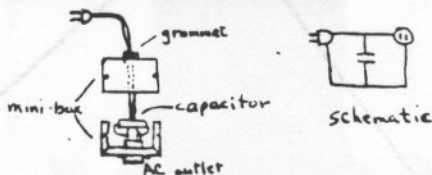 grommet
mini-box
capacitor
AC outlet
schematic